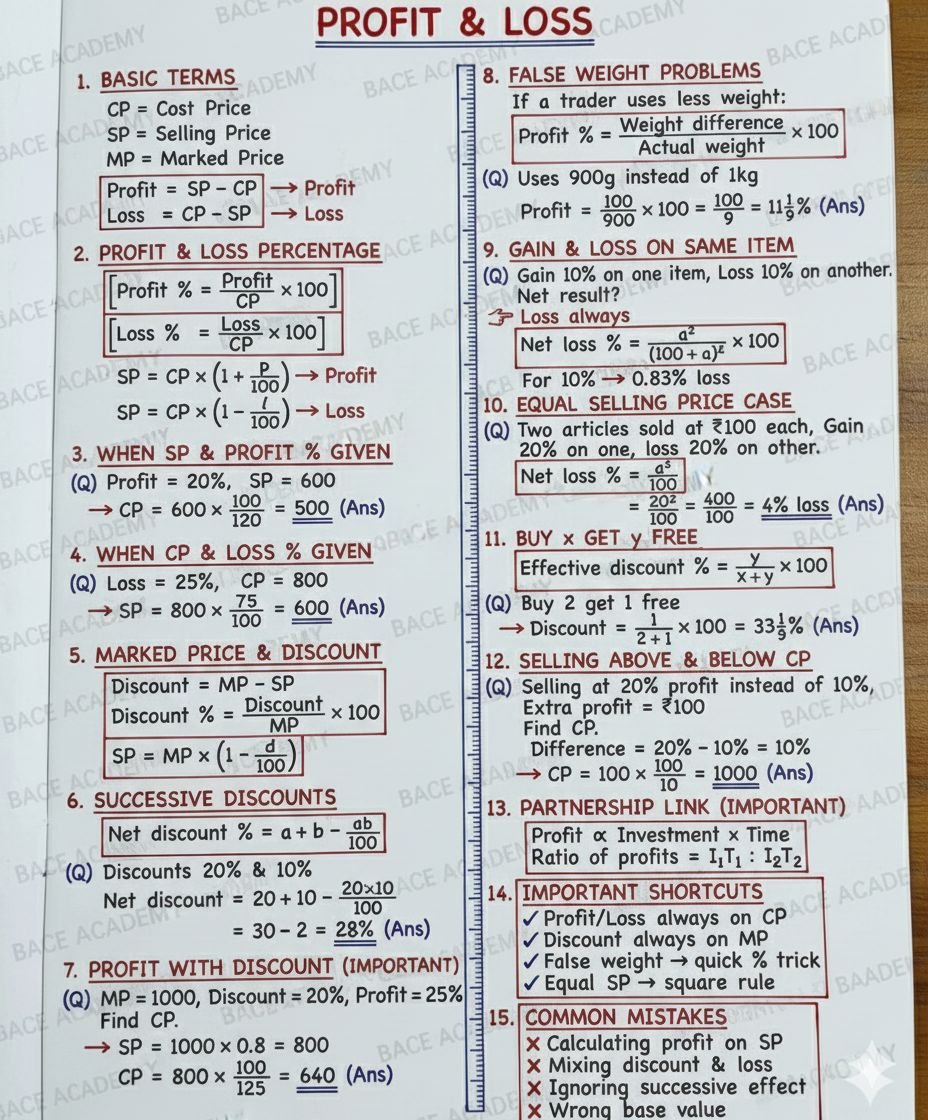 PROFIT & LOSS
1. BASIC TERMS
CP = Cost Price
SP = Selling Price
MP = Marked Price
Profit = SP – CP → Profit
Loss = CP – SP → Loss
2. PROFIT & LOSS PERCENTAGE
[Profit % = Profit/CP × 100]
[Loss % = Loss/CP × 100]
SP = CP × (1 + P/100) → Profit
SP = CP × (1 – l/100) → Loss
3. WHEN SP & PROFIT % GIVEN
(Q) Profit = 20%, SP = 600
→ CP = 600 × 100/120 = 500 (Ans)
4. WHEN CP & LOSS % GIVEN
(Q) Loss = 25%, CP = 800
→ SP = 800 × 75/100 = 600 (Ans)
5. MARKED PRICE & DISCOUNT
Discount = MP – SP
Discount % = Discount/MP × 100
SP = MP × (1 – d/100)
6. SUCCESSIVE DISCOUNTS
Net discount % = a + b – ab/100
(Q) Discounts 20% & 10%
Net discount = 20 + 10 – 20×10/100
= 30 – 2 = 28% (Ans)
7. PROFIT WITH DISCOUNT (IMPORTANT)
(Q) MP = 1000, Discount = 20%, Profit = 25%
Find CP.
→ SP = 1000 × 0.8 = 800
CP = 800 × 100/125 = 640 (Ans)
8. FALSE WEIGHT PROBLEMS
If a trader uses less weight:
Profit % = Weight difference/Actual weight × 100
(Q) Uses 900g instead of 1kg
Profit = 100/900 × 100 = 100/9 = 11 1/9% (Ans)
9. GAIN & LOSS ON SAME ITEM
(Q) Gain 10% on one item, Loss 10% on another.
Net result?
☞ Loss always
Net loss % = a²/(100 + a)² × 100
For 10% → 0.83% loss
10. EQUAL SELLING PRICE CASE
(Q) Two articles sold at ₹100 each, Gain
20% on one, loss 20% on other.
Net loss % = a⁵/100
= 20²/100 = 400/100 = 4% loss (Ans)
11. BUY x GET y FREE
Effective discount % = y/x+y × 100
(Q) Buy 2 get 1 free
→ Discount = 1/2+1 × 100 = 33 1/9% (Ans)
12. SELLING ABOVE & BELOW CP
(Q) Selling at 20% profit instead of 10%,
Extra profit = ₹100
Find CP.
Difference = 20% – 10% = 10%
→ CP = 100 × 100/10 = 1000 (Ans)
13. PARTNERSHIP LINK (IMPORTANT)
Profit ∝ Investment × Time
Ratio of profits = I₁T₁ : I₂T₂
14. IMPORTANT SHORTCUTS
✓ Profit/Loss always on CP
✓ Discount always on MP
✓ False weight → quick % trick
✓ Equal SP → square rule
15. COMMON MISTAKES
✗ Calculating profit on SP
✗ Mixing discount & loss
✗ Ignoring successive effect
✗ Wrong base value
BACE ACADEMY